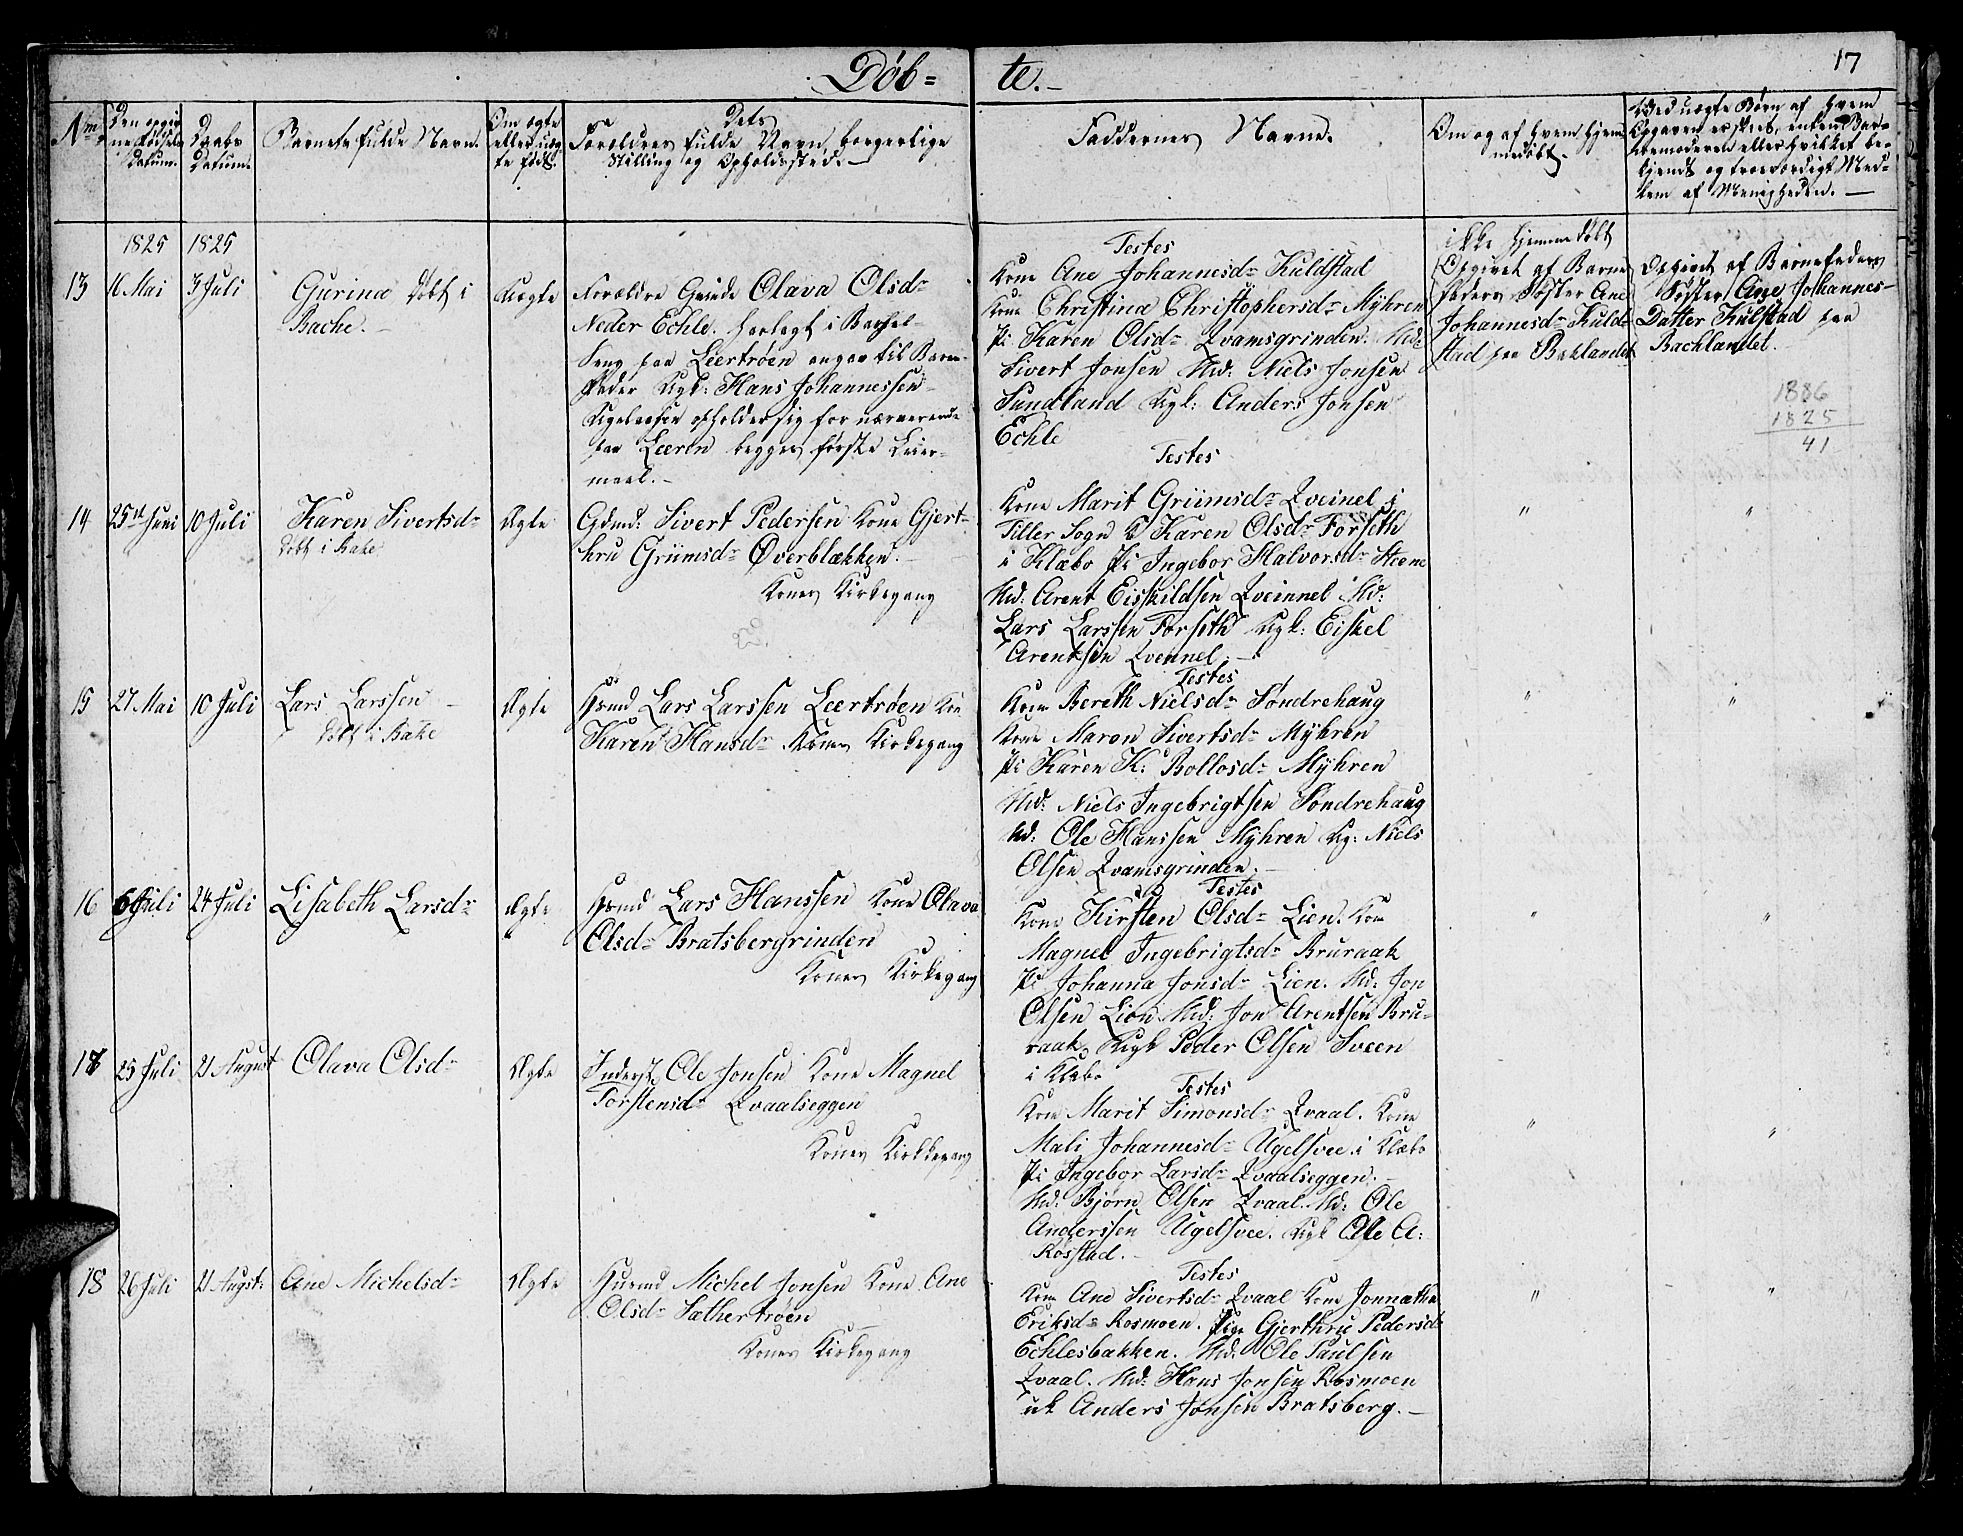 Døb= te.-
17
Den opgivne Fødsels Datum.
Daabs Datum.
Barnets fulde Navn.
Om ægte eller uægte født.
Forældres fulde Navn, borgerlige Stilling og Opholdssted.
Faddernes Navne.
Om og af hvem hjemmedøbt.
Ved uægte Børn af hvem Opgaven er skeet, enten Barnemoderen eller hvilket bekjendt og troeværdigt Medlem af Menigheden.
1825 1825
13 16 Mai 3 Juli
Gurina døbt i
Bache.
Uægte
Forældre Olava Olsd=
Neder Echle.
Seng paa Leertrøen angav til Barne-
Fader Ugk: Hans Johannessen
opholder sig for nærværende
paa Leeren begges første Leier-
maal.
Testes
Kone Ane Johannesd= Kuldstad
Kone Christina Christophersd= Mÿhren
Pi Karen Olsd= Qvamsgrinden. Md:
Sivert Jonsen Md: Niels Jonsen
Sundland Ugk: Anders Jonsen
Echle
ikke hjemmedøbt
Opgivet af Barne
Faders Søster Ane
Johannesd= Kuld=
stad paa Baklandet
Opgivet af Barnefaders
Søster Ane Johannes-
Datter Kulstad paa
Bachlandet.
1886
1825
41
14 25de Juni 10 Juli
Karen Sivertsd=
døbt i Bake
Ægte
Gdmd: Sivert Pedersen Kone Gjert-
hru Griimsd= Øverblækken.
Koner Kirkegang
Testes
Kone Marit Griimsd= Qveinel i
Tiller Sogn K Karen Olsd= Forseth
i Klæbo Pi Ingebor Halvorsd= Steene
Md: Arent Eiskildsen Qveinnel Md:
Lars Larssen Forseth Ugk: Eiskel
Arentsen Qvennel.
" "
15 27 Mai 10 Juli
Lars Larssen
døbt i Bake
Ægte
Hsmd Lars Larssen Leertrøen Kon
Karen Hansd= Koner Kirkegang
Testes
Kone Bereth Nielsd= Søndrehaug
Kone Maren Sivertsd= Mÿhren
Pi Karen K: Bollosd= Mÿhren
Md: Niels Ingebrigtsen Søndrehaug
Md: Ole Hanssen Mÿhren Ug: Niels
Olsen Qvamsgrinden.
" "
16 6 Juli 24 Juli
Lisabeth Larsd=
Ægte
Hsmd Lars Hanssen Kone Olava
Olsd= Bratsbergrinden
Koner Kirkegang
Testes
Kone Kirsten Olsd= Lien. Kon
Magnel Ingebrigtsd= Bruraak
Pi Johanna Jonsd= Lien. Md: Jon
Olsen Lien. Md: Jon Arentsen Bru=
raak Ugk Peder Olsen Sveen
i Klæbo
" "
17 25 Juli 21 August
Olava Olsd=
Ægte
Inderst Ole Jonsen Kone Magnel
Torstensd= Qvaalseggen
Koner Kirkegang
Testes
Kon Marit Simonsd= Qvaal. Kone
Mali Johannesd= Ugelsvee i Klæbo
Pi Ingebor Larsd= Qvaalseggen.
Md: Bjørn Olsen Qvaal. Md: Ole
Anderssen Ugelsvee. Ugk Ole A:
Røsstad.
" "
18 26 Juli 21 Augst:
Ane Michelsd=
Ægte
Huusmd Michel Jonsen Kone Ane
Olsd= Sathertrøen
Koner Kirkegang
Testes
Kon Ane Sivertsd= Qvaal Kone Jonnetha
Eriksd= Rosmoen. Pige Gjerthru Pedersd=
Echlesbakken. Md. Ole Paulsen
Qvaal. Md: Hans Jonsen Rosmoen
uk Anders Jonsen Bratsberg.
" "